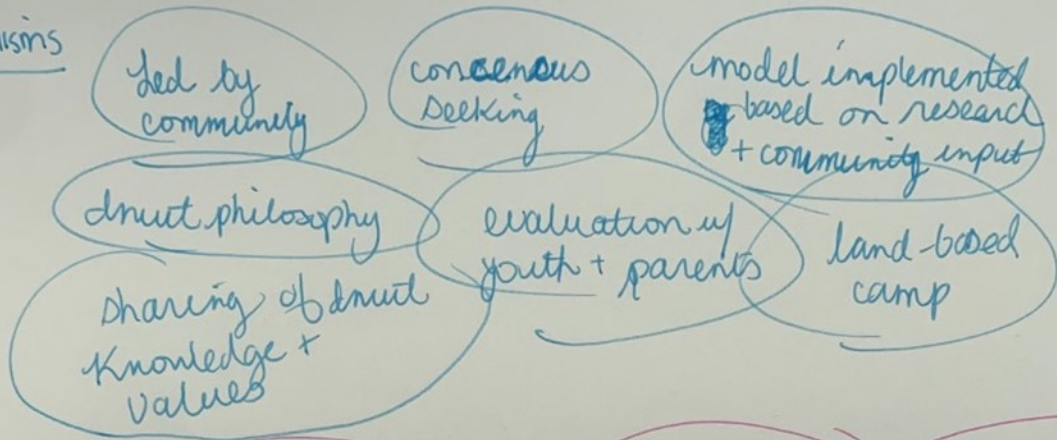 isms
Led by
community
concensus
seeking
model implemented
based on research
+ community input
Inuit philosophy
evaluation w/
youth + parents
land-based
camp
sharing of Inuit
knowledge +
values